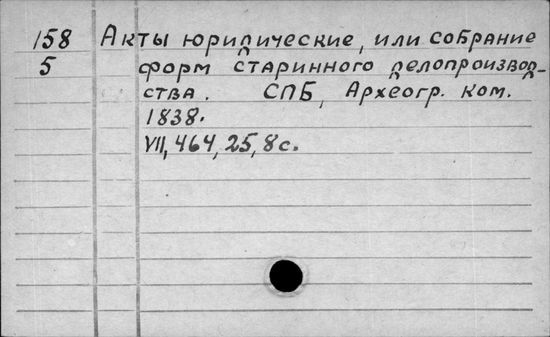 158 Акты юридические, или собрание
5 форм старинного делопроизвод-
ства. СПБ, Археогр. ком.
1838.
VII, 464, 25, 8 с.